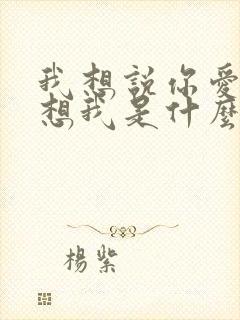 我想説你愛
想我是什麼
楊紫